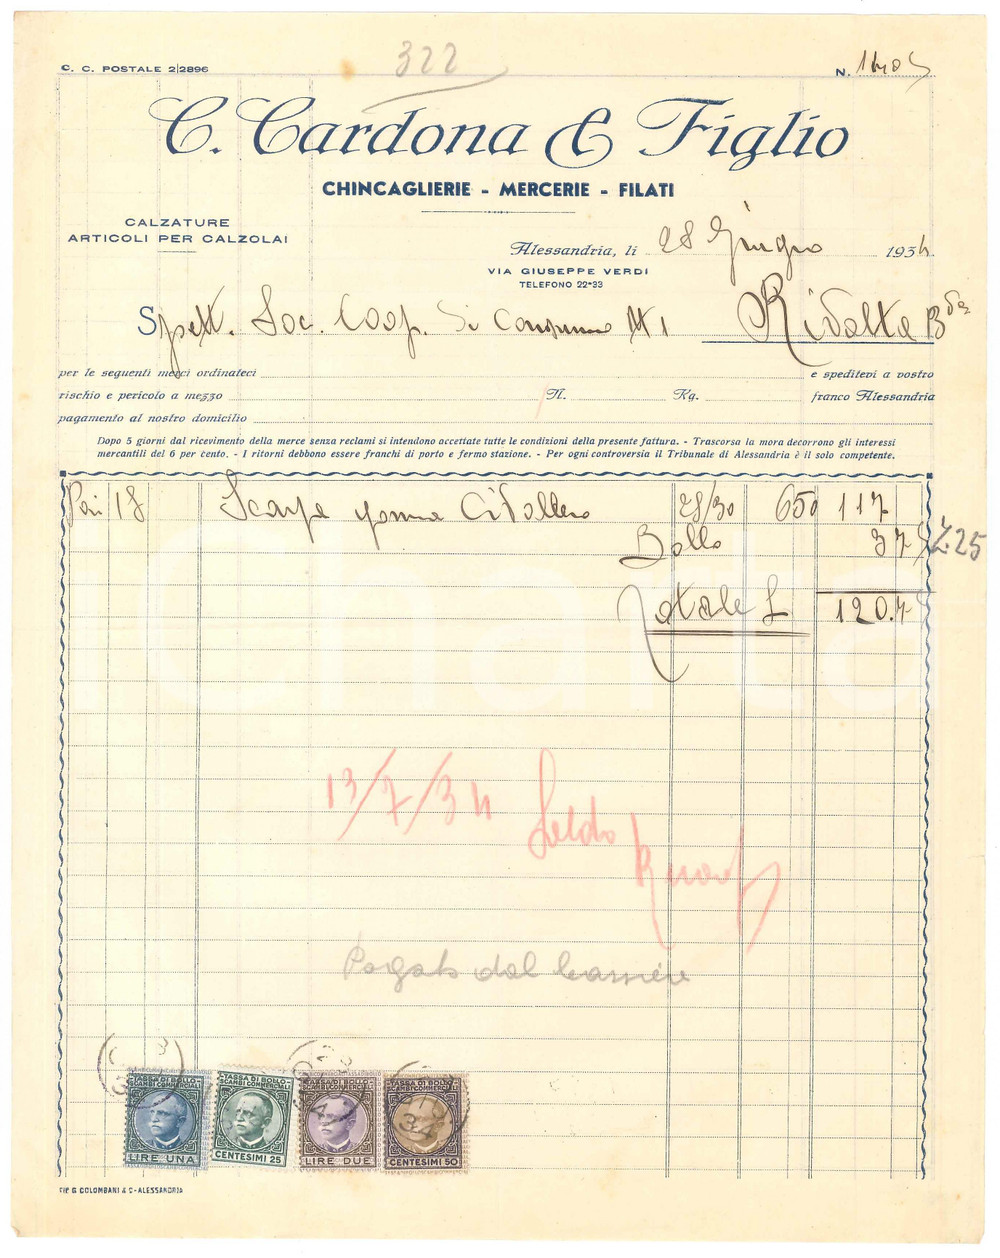 C. C. POSTALE 2|2896
322
N.
C. Cardona & Figlio
CHINCAGLIERIE - MERCERIE - FILATI
CALZATURE
ARTICOLI PER CALZOLAI
Alessandria, li 28 Giugno 1934
VIA GIUSEPPE VERDI
TELEFONO 22-33
Spett. Soc. Coop. di Consumo Rivalta Bda
per le seguenti merci ordinateci e speditevi a vostro
rischio e pericolo a mezzo N. Kg. franco Alessandria
pagamento al nostro domicilio
Dopo 5 giorni dal ricevimento della merce senza reclami si intendono accettate tutte le condizioni della presente fattura. - Trascorsa la mora decorrono gli interessi
mercantili del 6 per cento. - I ritorni debbono essere franchi di porto e fermo stazione. - Per ogni controversia il Tribunale di Alessandria è il solo competente.
Pai 18 Scarpe gomma 28/30 650 117
Bollo 3 75
Totale L 120.75
Charta
13/7/34 Saldo
Pagato dal cassiere
TASSA DI BOLLO
SCAMBI COMMERCIALI
LIRE UNA
TASSA DI BOLLO
SCAMBI COMMERCIALI
CENTESIMI 25
TASSA DI BOLLO
SCAMBI COMMERCIALI
LIRE DUE
TASSA DI BOLLO
SCAMBI COMMERCIALI
CENTESIMI 50
TIP. G. COLOMBANI & C - ALESSANDRIA